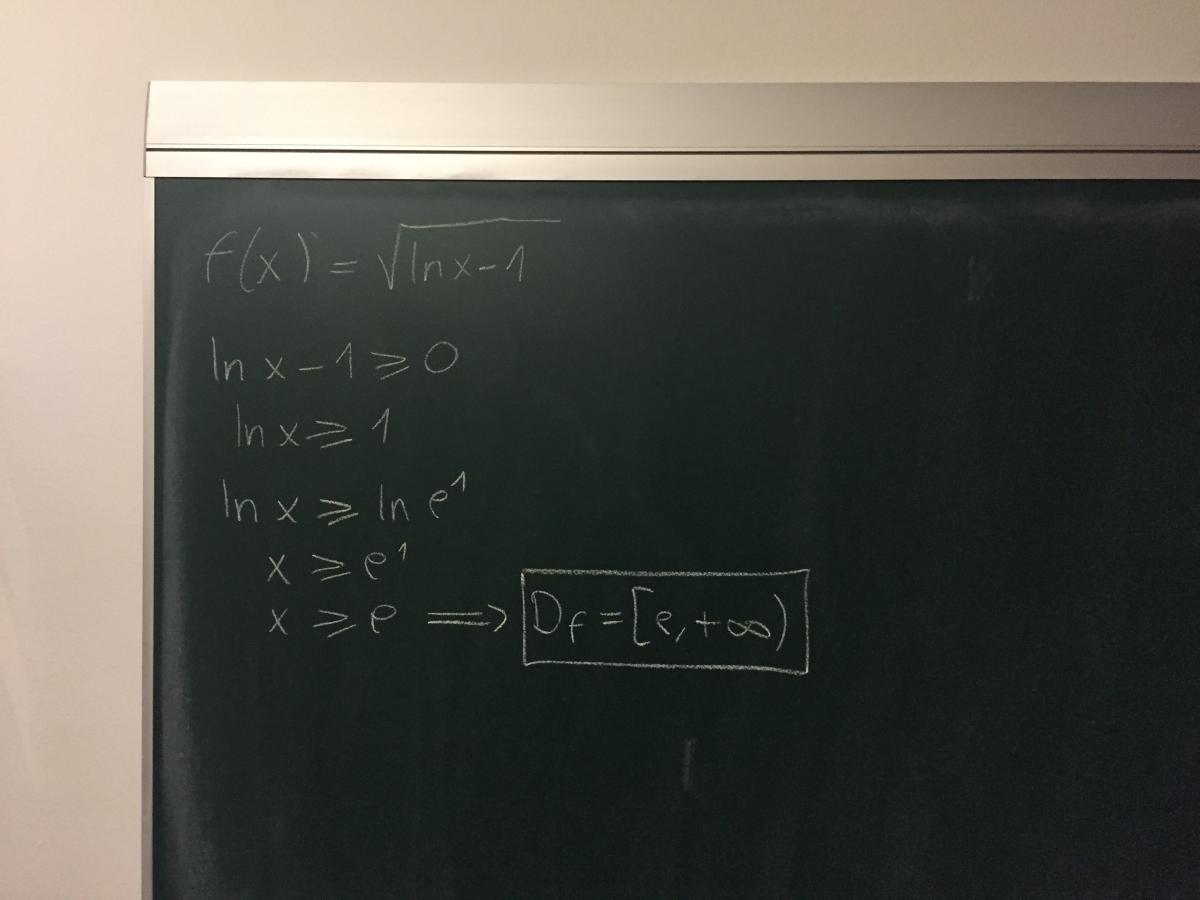 f(x) = √(ln x - 1)
ln x - 1 ⩾ 0
ln x ⩾ 1
ln x ⩾ ln e¹
x ⩾ e¹
x ⩾ e ⟹ D_f = [e, +∞)